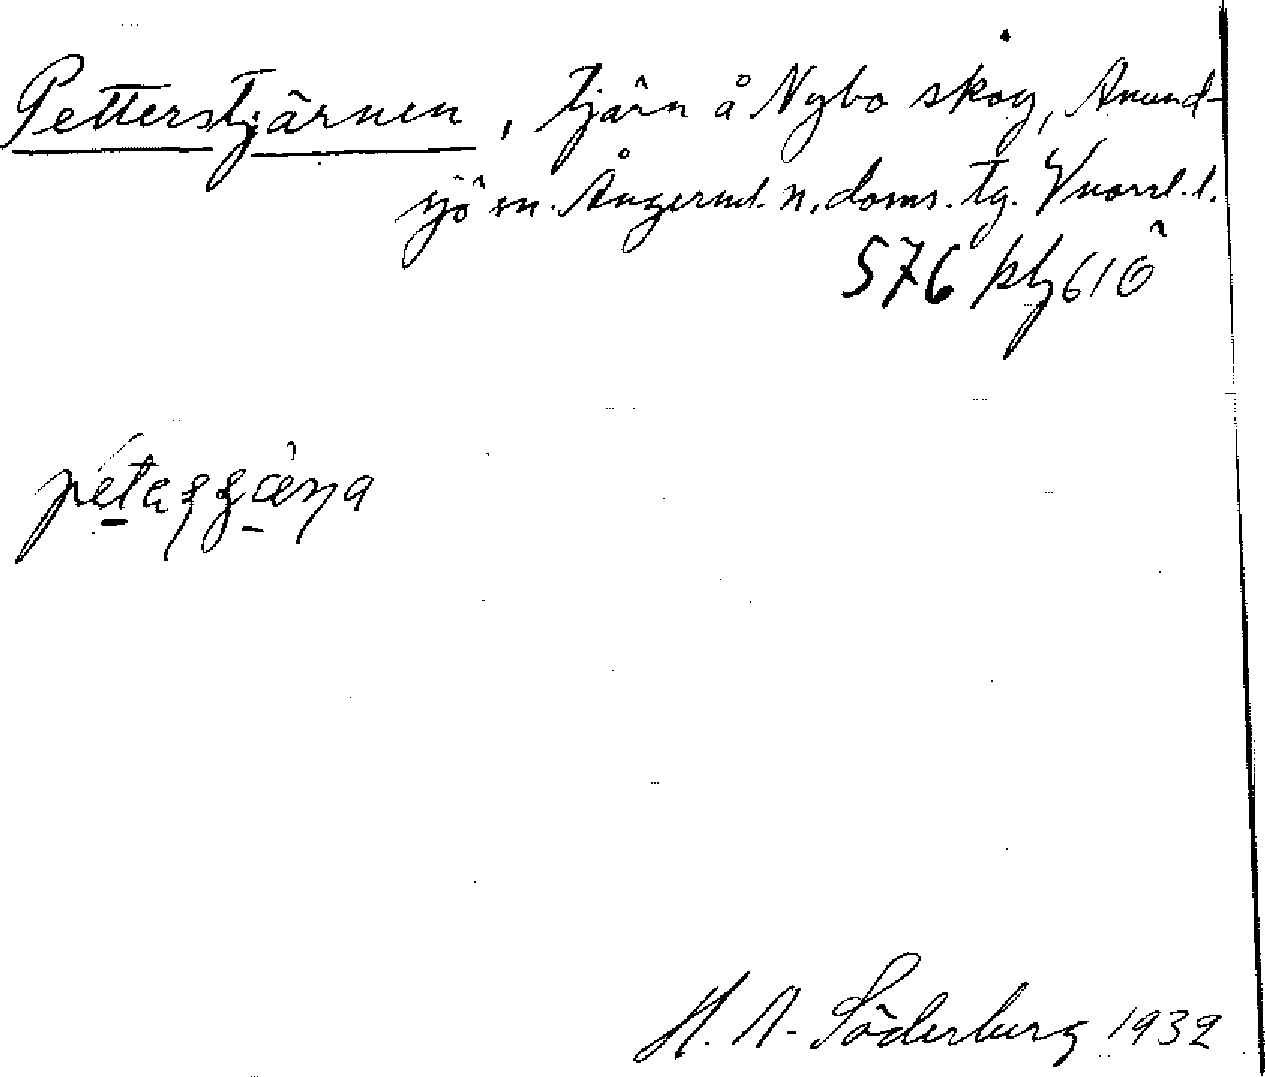 Petterstjärnen, tjärn å Nybo skog, Anund-
sjö sn. Ångerml. n. doms. tg. Vnorrl. l.
576
H. N. Söderberg 1932